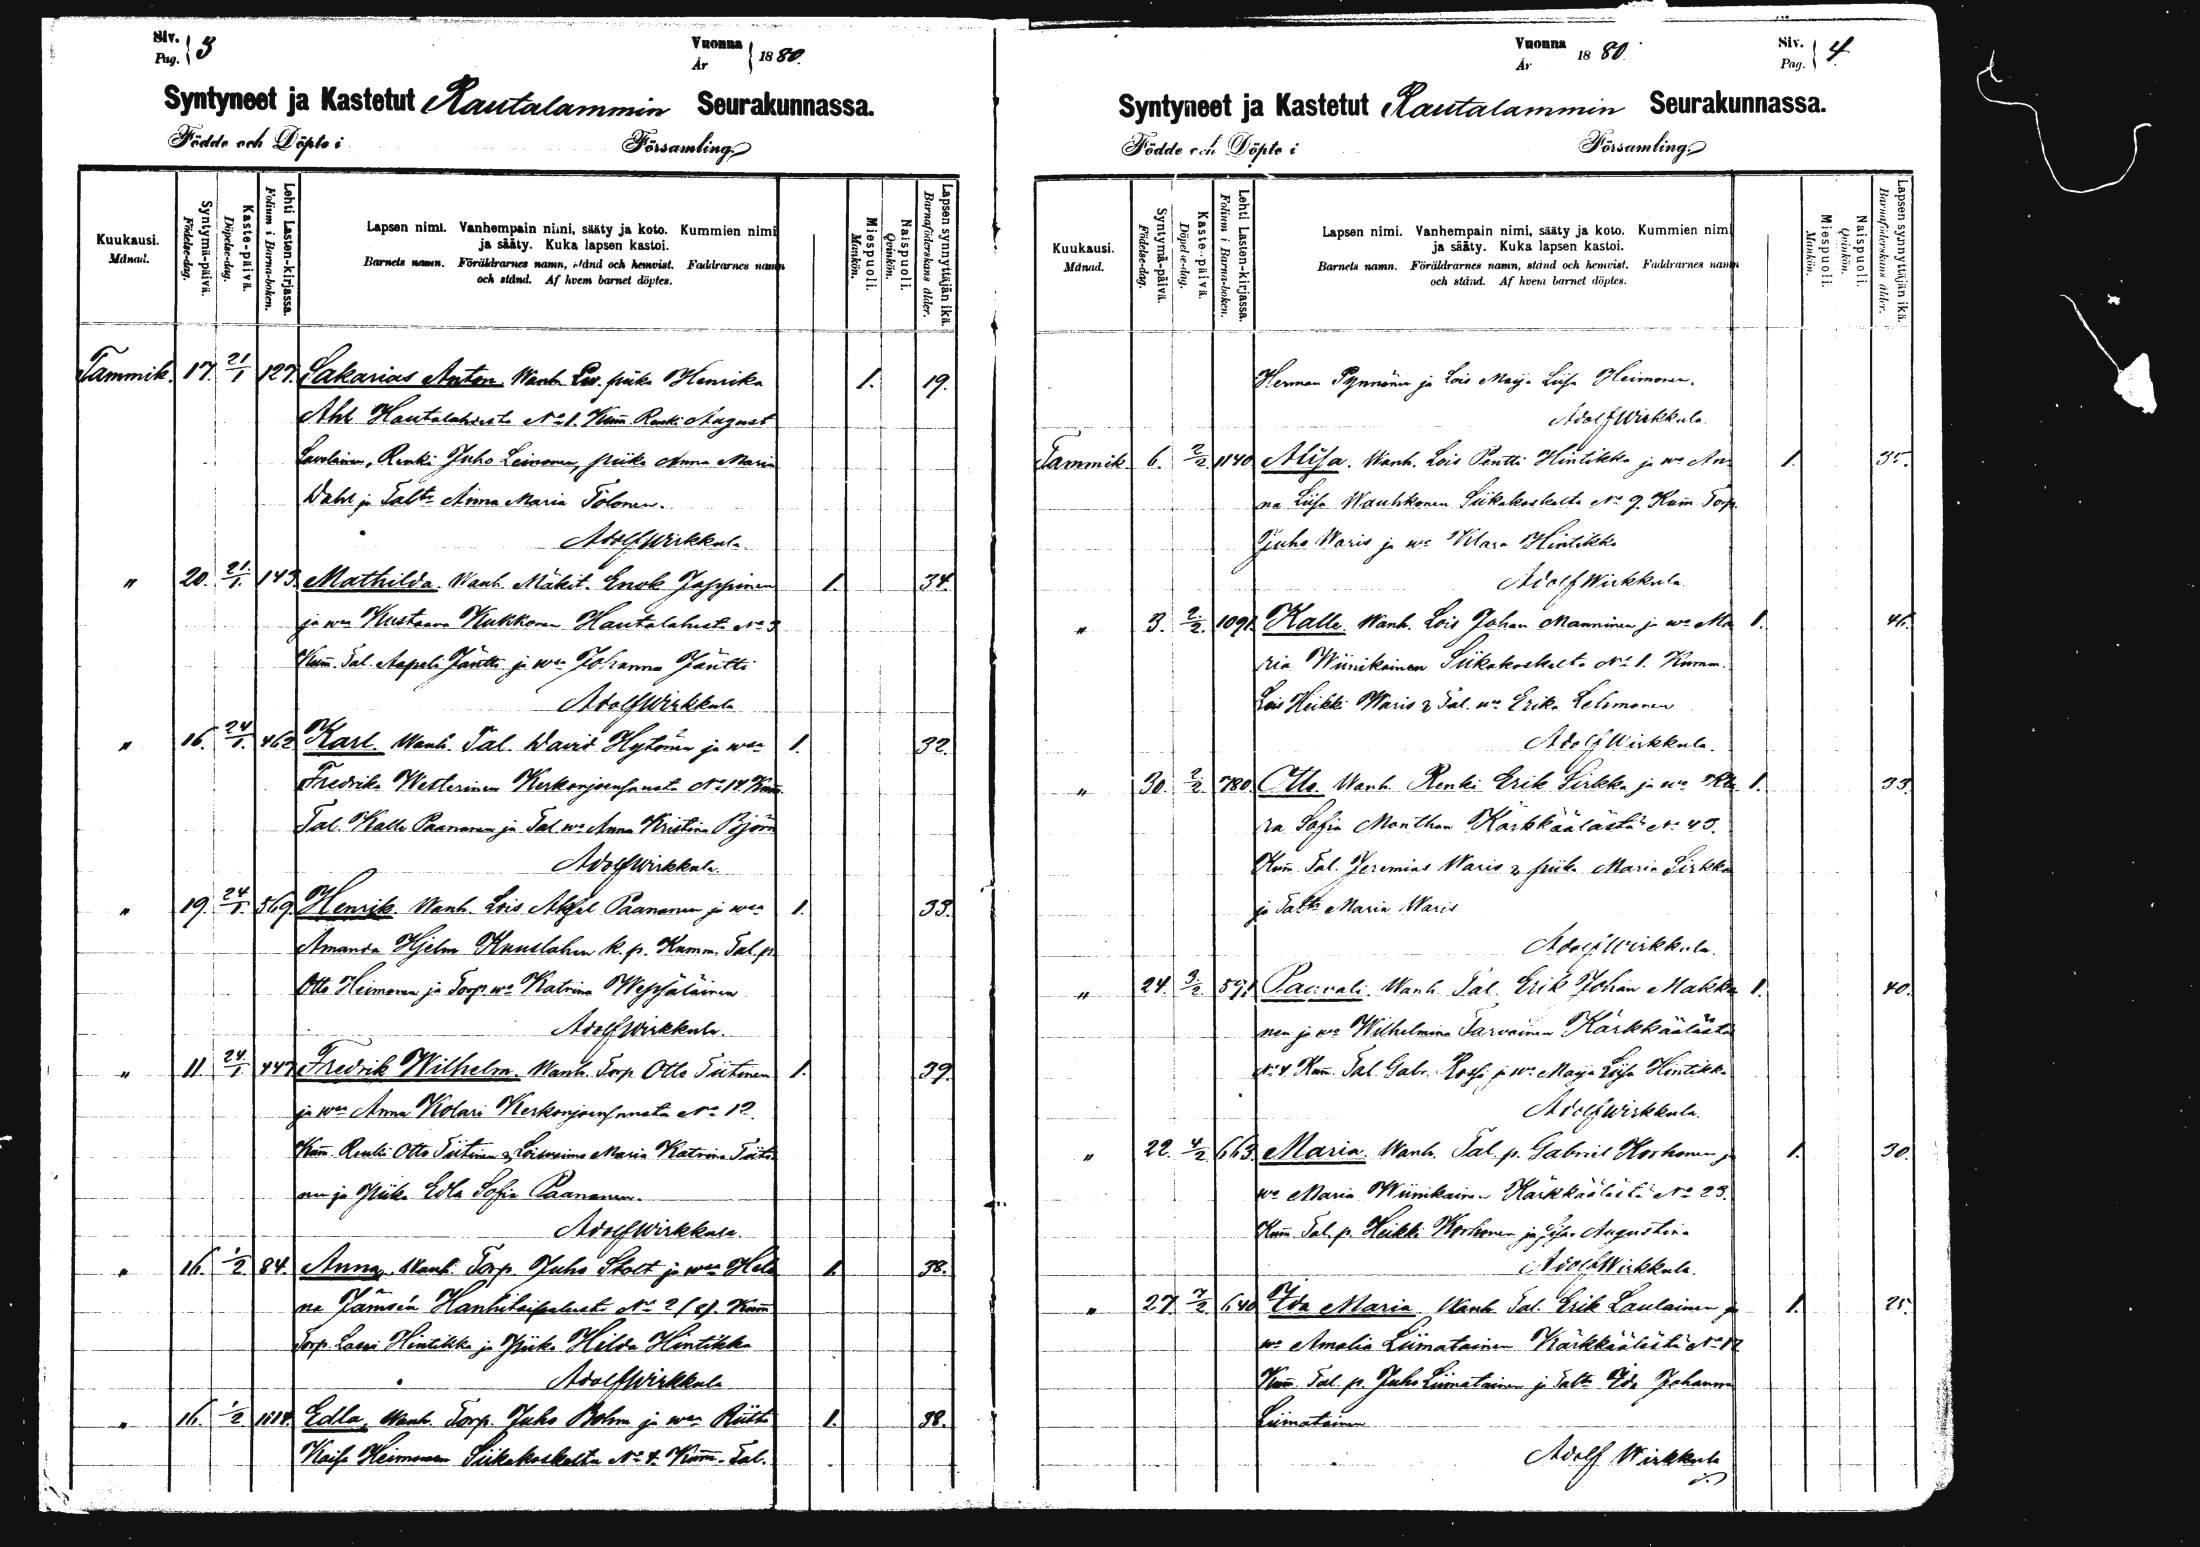 Siv. Pag. 3
Vuonna År 1880.
Syntyneet ja Kastetut Rautalammin Seurakunnassa.
Födde och Döpte i Församling
Kuukausi. Månad.
Syntymä-päivä. Födelse-dag.
Kaste-päivä. Döpelse-dag.
Lehti Lasten-kirjassa. Folium i Barna-boken.
Lapsen nimi. Vanhempain nimi, sääty ja koto. Kummien nimi
ja sääty. Kuka lapsen kastoi.
Barnets namn. Föräldrarnes namn, stånd och hemvist. Faddrarnes namn
och stånd. Af hvem barnet döptes.
Miespuoli. Mankön.
Naispuoli. Qvinkön.
Lapsen synnyttäjän ikä. Barnaföderskans ålder.
Tammik. 17. 21/1 127. Sakarias Anton. Wanh. piika Henrika 1. 19.
Ahl Hautalahdesta No 1. Kum. Renki August
Savolainen, Renki Juho Leinonen, piika Anna Maria
Dahl ja Taltr Anna Maria Tolonen.
Adolf Wirkkula.
" 20. 21/1. 143. Mathilda. Wanh. Mäkit. Enok Jappinen 1. 34.
ja wa Kustaava Kukkonen Hautalahdesta No 3
Kum. Tal. Aapeli Jäntti ja wa Johanna Jäntti
Adolf Wirkkula
" 16. 24/1. 462 Karl. Wanh. Tal. David Hytönen ja wa 1. 32.
Fredrika Westerinen Kerkonjoensuusta No 14 Kum.
Tal. Kalle Paananen ja Tal. wa Anna Kristina Björn
Adolf Wirkkula.
" 19. 24/1. 569. Henrik. Wanh. Lois Paananen ja wa 1. 33.
Amanda Hjelm Kuuslahen k. p. Kumm. Tal. p.
Otto Heimonen ja Torp. wa Katrina Wepsäläinen
Adolf Wirkkula.
" 11 24/1 447 Fredrik Wilhelm. Wanh. Torp Otto Tiitinen 1. 39.
ja wa Anna Kolari Kerkonjoensuusta No 12.
Kum. Renki Otto Tiitinen & Loisvaimo Maria Katrina Tiiti
nen ja Piika Edla Sofia Paananen.
Adolf Wirkkula.
" 16. 1/2 84. Anna, Wanh. Torp. Juho Stolt ja wa Hele 1. 38.
na Jämsén Hanhitaipaleesta No 2 Kum
Torp. Lassi Hintikka ja Piika Hilda Hintikka
Adolf Wirkkula
" 16. 1/2 Edla, Wanh. Torp. Juho Bohm ja wa Riitta 1. 38.
Kaisa Heimonen Siikakoskelta No 4. Kum. Tal.
Siv. Pag. 4
Vuonna År 1880.
Syntyneet ja Kastetut Rautalammin Seurakunnassa.
Födde och Döpte i Församling
Kuukausi. Månad.
Syntymä-päivä. Födelse-dag.
Kaste-päivä. Döpelse-dag.
Lehti Lasten-kirjassa. Folium i Barna-boken.
Lapsen nimi. Vanhempain nimi, sääty ja koto. Kummien nim
ja sääty. Kuka lapsen kastoi.
Barnets namn. Föräldrarnes namn, stånd och hemvist. Faddrarnes namn
och stånd. Af hvem barnet döptes.
Miespuoli. Mankön.
Naispuoli. Qvinkön.
Lapsen synnyttäjän ikä. Barnaföderskans ålder.
Herman Pynnönen ja Lois Maija Liisa Heimonen.
Adolf Wirkkula.
Tammik 6. 2/2 1140 Alisa. Wanh. Lois Pentti Hintikka ja wa An 1. 35.
na Liisa Wauhkonen Siikakoskelta No 9. Kum Torp.
Juho Waris ja wa Klara Hintikka
Adolf Wirkkula.
" 3. 2/2 1091. Kalle. Wanh. Lois Johan Manninen ja wa Ma 1. 46.
ria Wiinikainen Siikakoskelta No 1. Kumm.
Lois Heikki Waris & Tal. wa Erika Lehmonen
Adolf Wirkkula.
" 30. 2/2 780. Otto. Wanh. Renki Erik Sirkka ja wa Kla 1. 33.
ra Sofia Manthan Kärkkäälästä No 43.
Kum. Tal. Jeremias Waris & piika Maria Sirkka
ja Taltr Maria Waris
Adolf Wirkkula.
" 24. 3/2 591 Paavali. Wanh. Tal. Erik Johan Makko 1. 40.
nen ja wa Wilhelmina Tarvainen Kärkkäälästä
No 4. Kum. Tal. Gabr. Rossi ja wa Maija Liisa Hintikka
Adolf Wirkkula.
" 22. 4/2 663. Maria. Wanh. Tal. p. Gabriel Korhonen ja 1. 30.
wa Maria Wiinikainen Kärkkäälästä No 23.
Kum. Tal. p. Heikki Korhonen ja Augustina
Adolf Wirkkula.
" 27. 7/2 640 Ida Maria. Wanh. Tal. Erik Laulainen ja 1. 25.
wa Amalia Liimatainen Kärkkäälästä No 12
Kum. Tal. p. Juho Liimatainen ja Taltr Ida Johanna
Liimatainen
Adolf Wirkkula